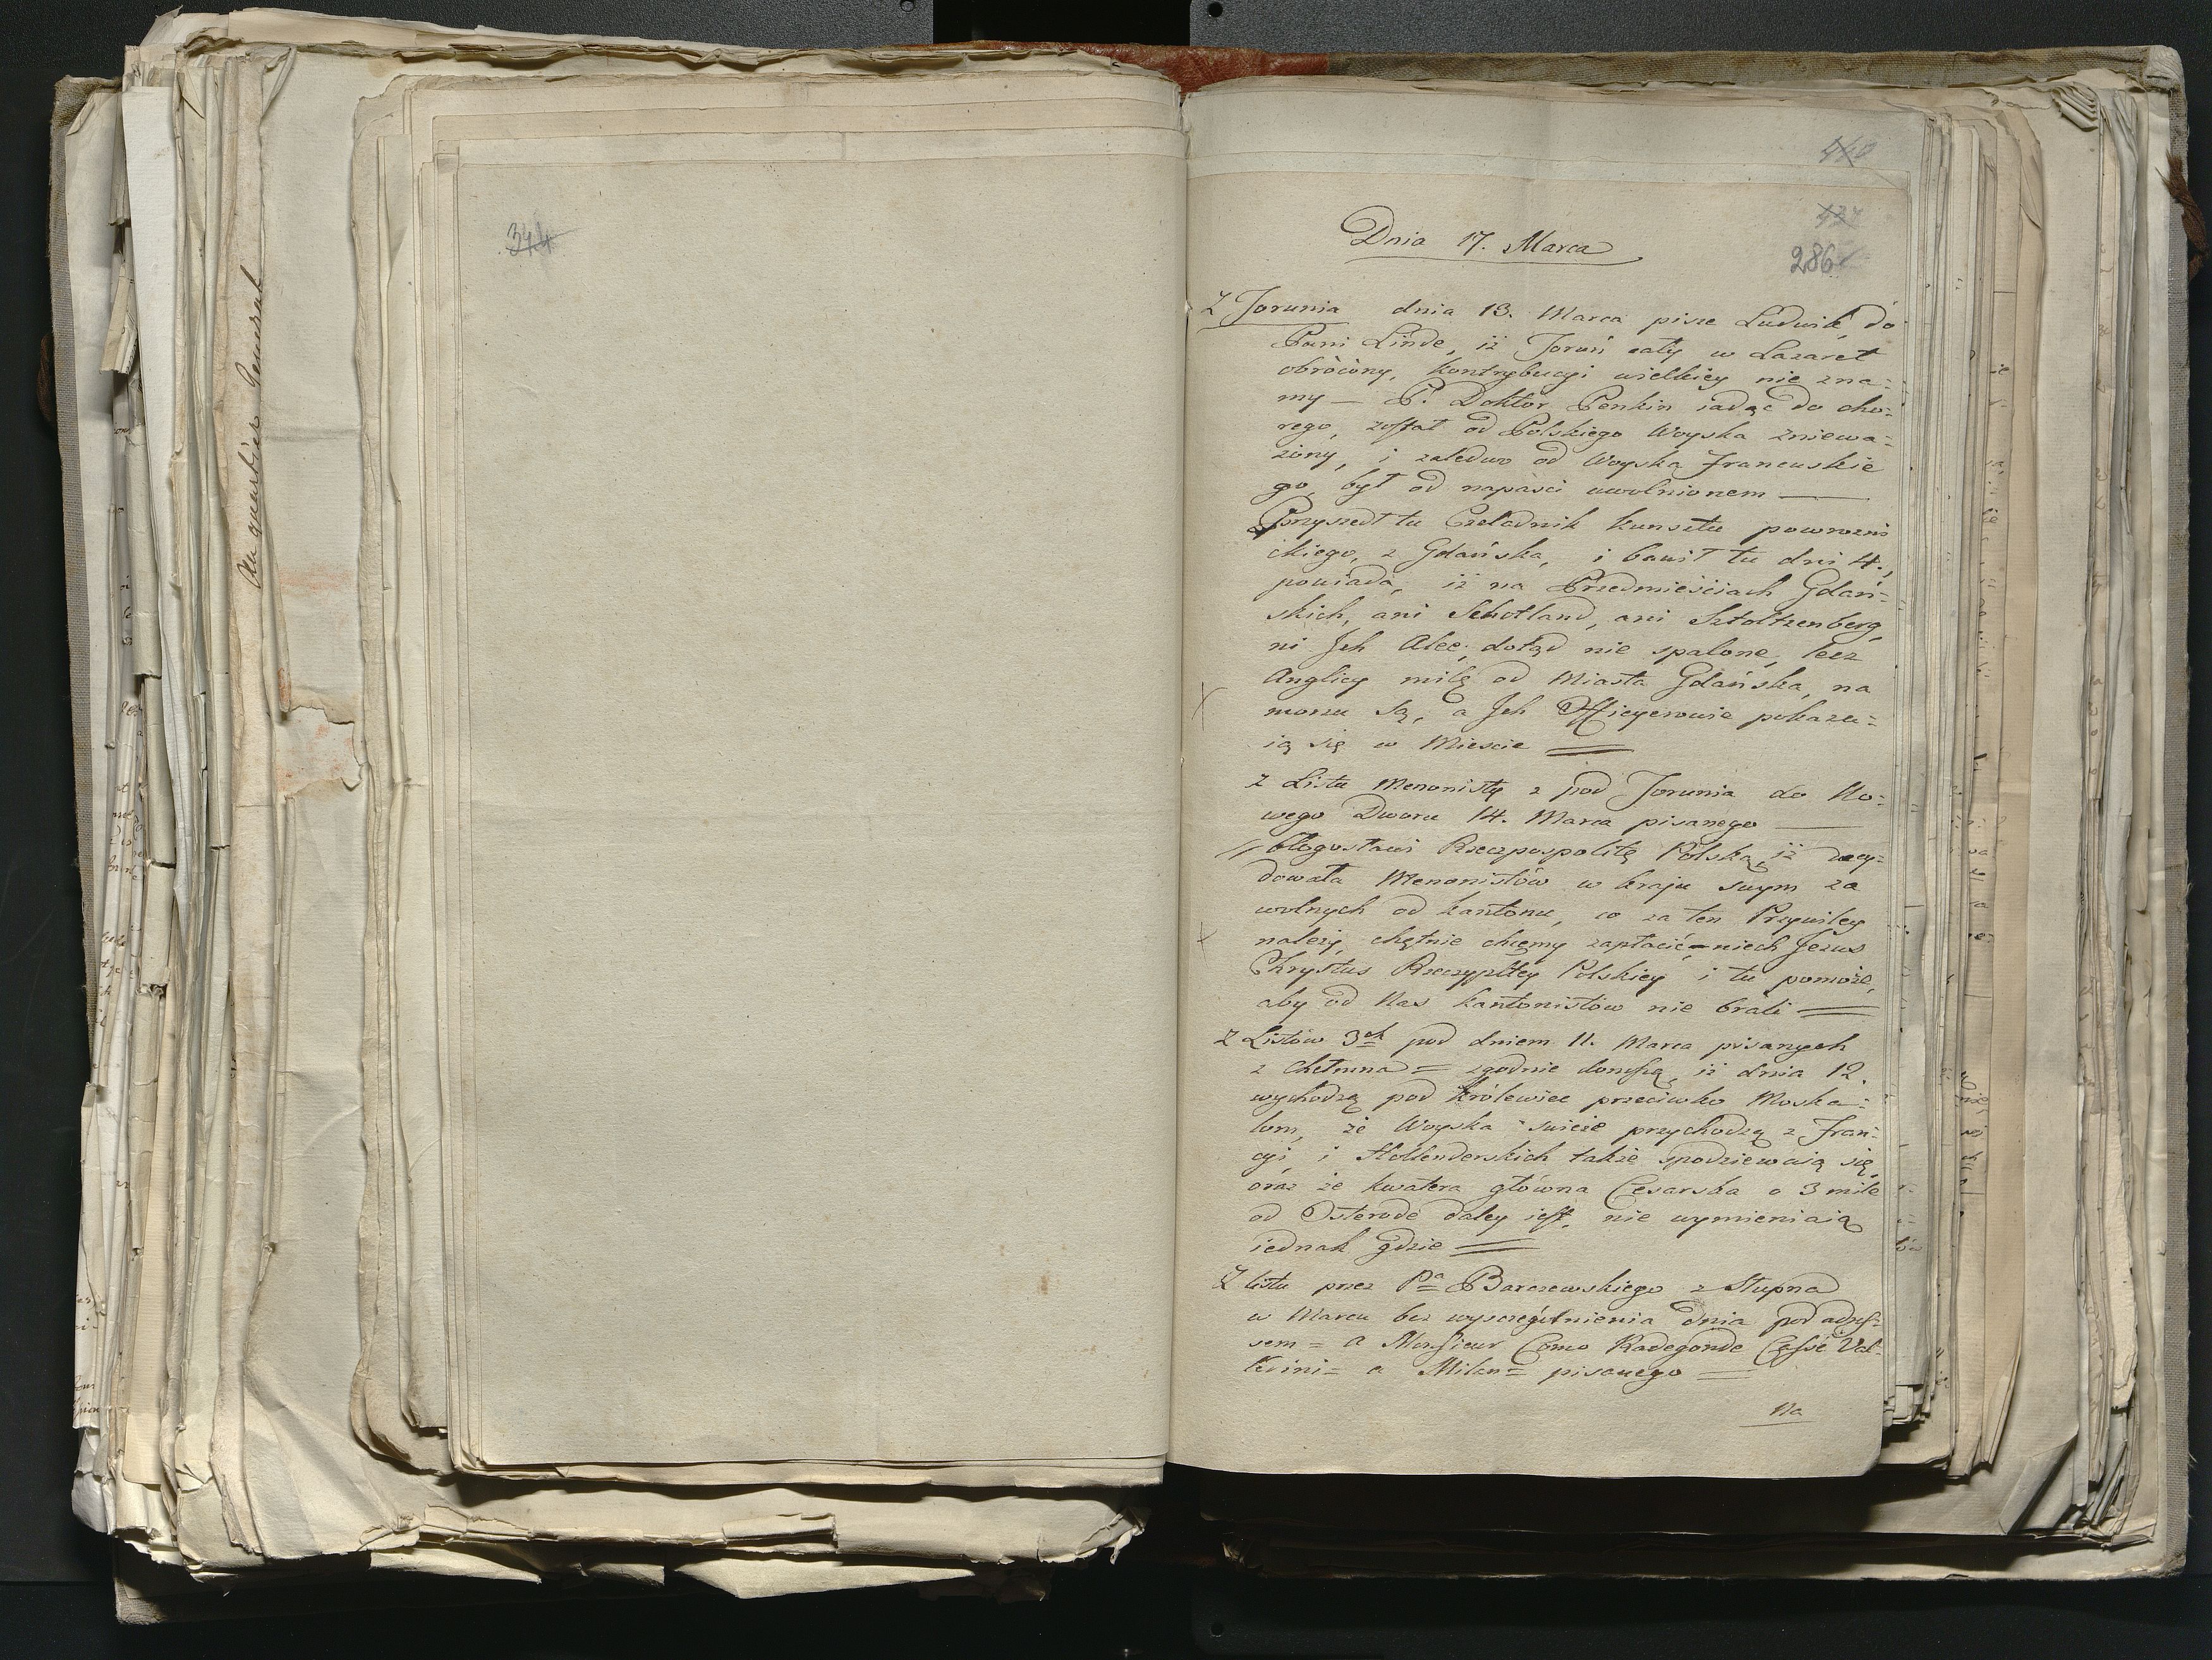 au quartier General
344
440
437
286
Dnia 17. Marca
Z Torunia dnia 13. Marca pisze Ludwik, do
Pani Linde, iż Toruń cały w Lazaret
obrócony, kontrybucyi wielkiey nie zna=
my — P. Doktor Penkin iadąc do cho=
rego, został od Polskiego Woyska zniewa=
żony, i zaledwo od Woyska Francuskie
go, był od napaści uwolnionem —
Przyszedł tu Czeladnik kunsztu powrozni
ckiego, z Gdańska, i bawił tu dni 4.,
powiada, iż na Przedmieściach Gdań=
skich, ani Schotland, ani Sztoltzenberg,
ni Ich Alee, dotąd nie spalone, lecz
Anglicy milę od Miasta Gdańska, na
morzu są, a Ich Officyerowie pokazu=
ią się w Mieście =
z Listu Menonisty z pod Torunia do No=
wego Dworu 14. Marca pisanego —
// błogosławi Rzeczpospolitę Polską, iż decy=
dowała Menonistów w kraju swym za
wolnych od kantonu, co za ten Przywiley
należy, chętnie chcemy zapłacić — niech Jezus
Chrystus Rzeczypltey Polskiey i tu pomoże,
aby od Nas kantonistów nie brali =
Z Listów 3ch pod dniem 11. Marca pisanych
z Chełmna = zgodnie donoszą, iż dnia 12.
wychodzą pod Królewiec przeciwko Moska=
lom, że Woyska świeże przychodzą z Fran=
cyi, i Hollenderskich także spodziewaią się,
oraz że kwatera główna Cesarska o 3 mile
od Osterode daley iest, nie wymieniaią
iednak gdzie =
Z listu przez Pa Barszewskiego z Słupna
w Marcu bez wyszczególnienia dnia pod adres=
sem = a Monsieur Como Radegonde Val=
lerini = a Milan = pisanego =
Na